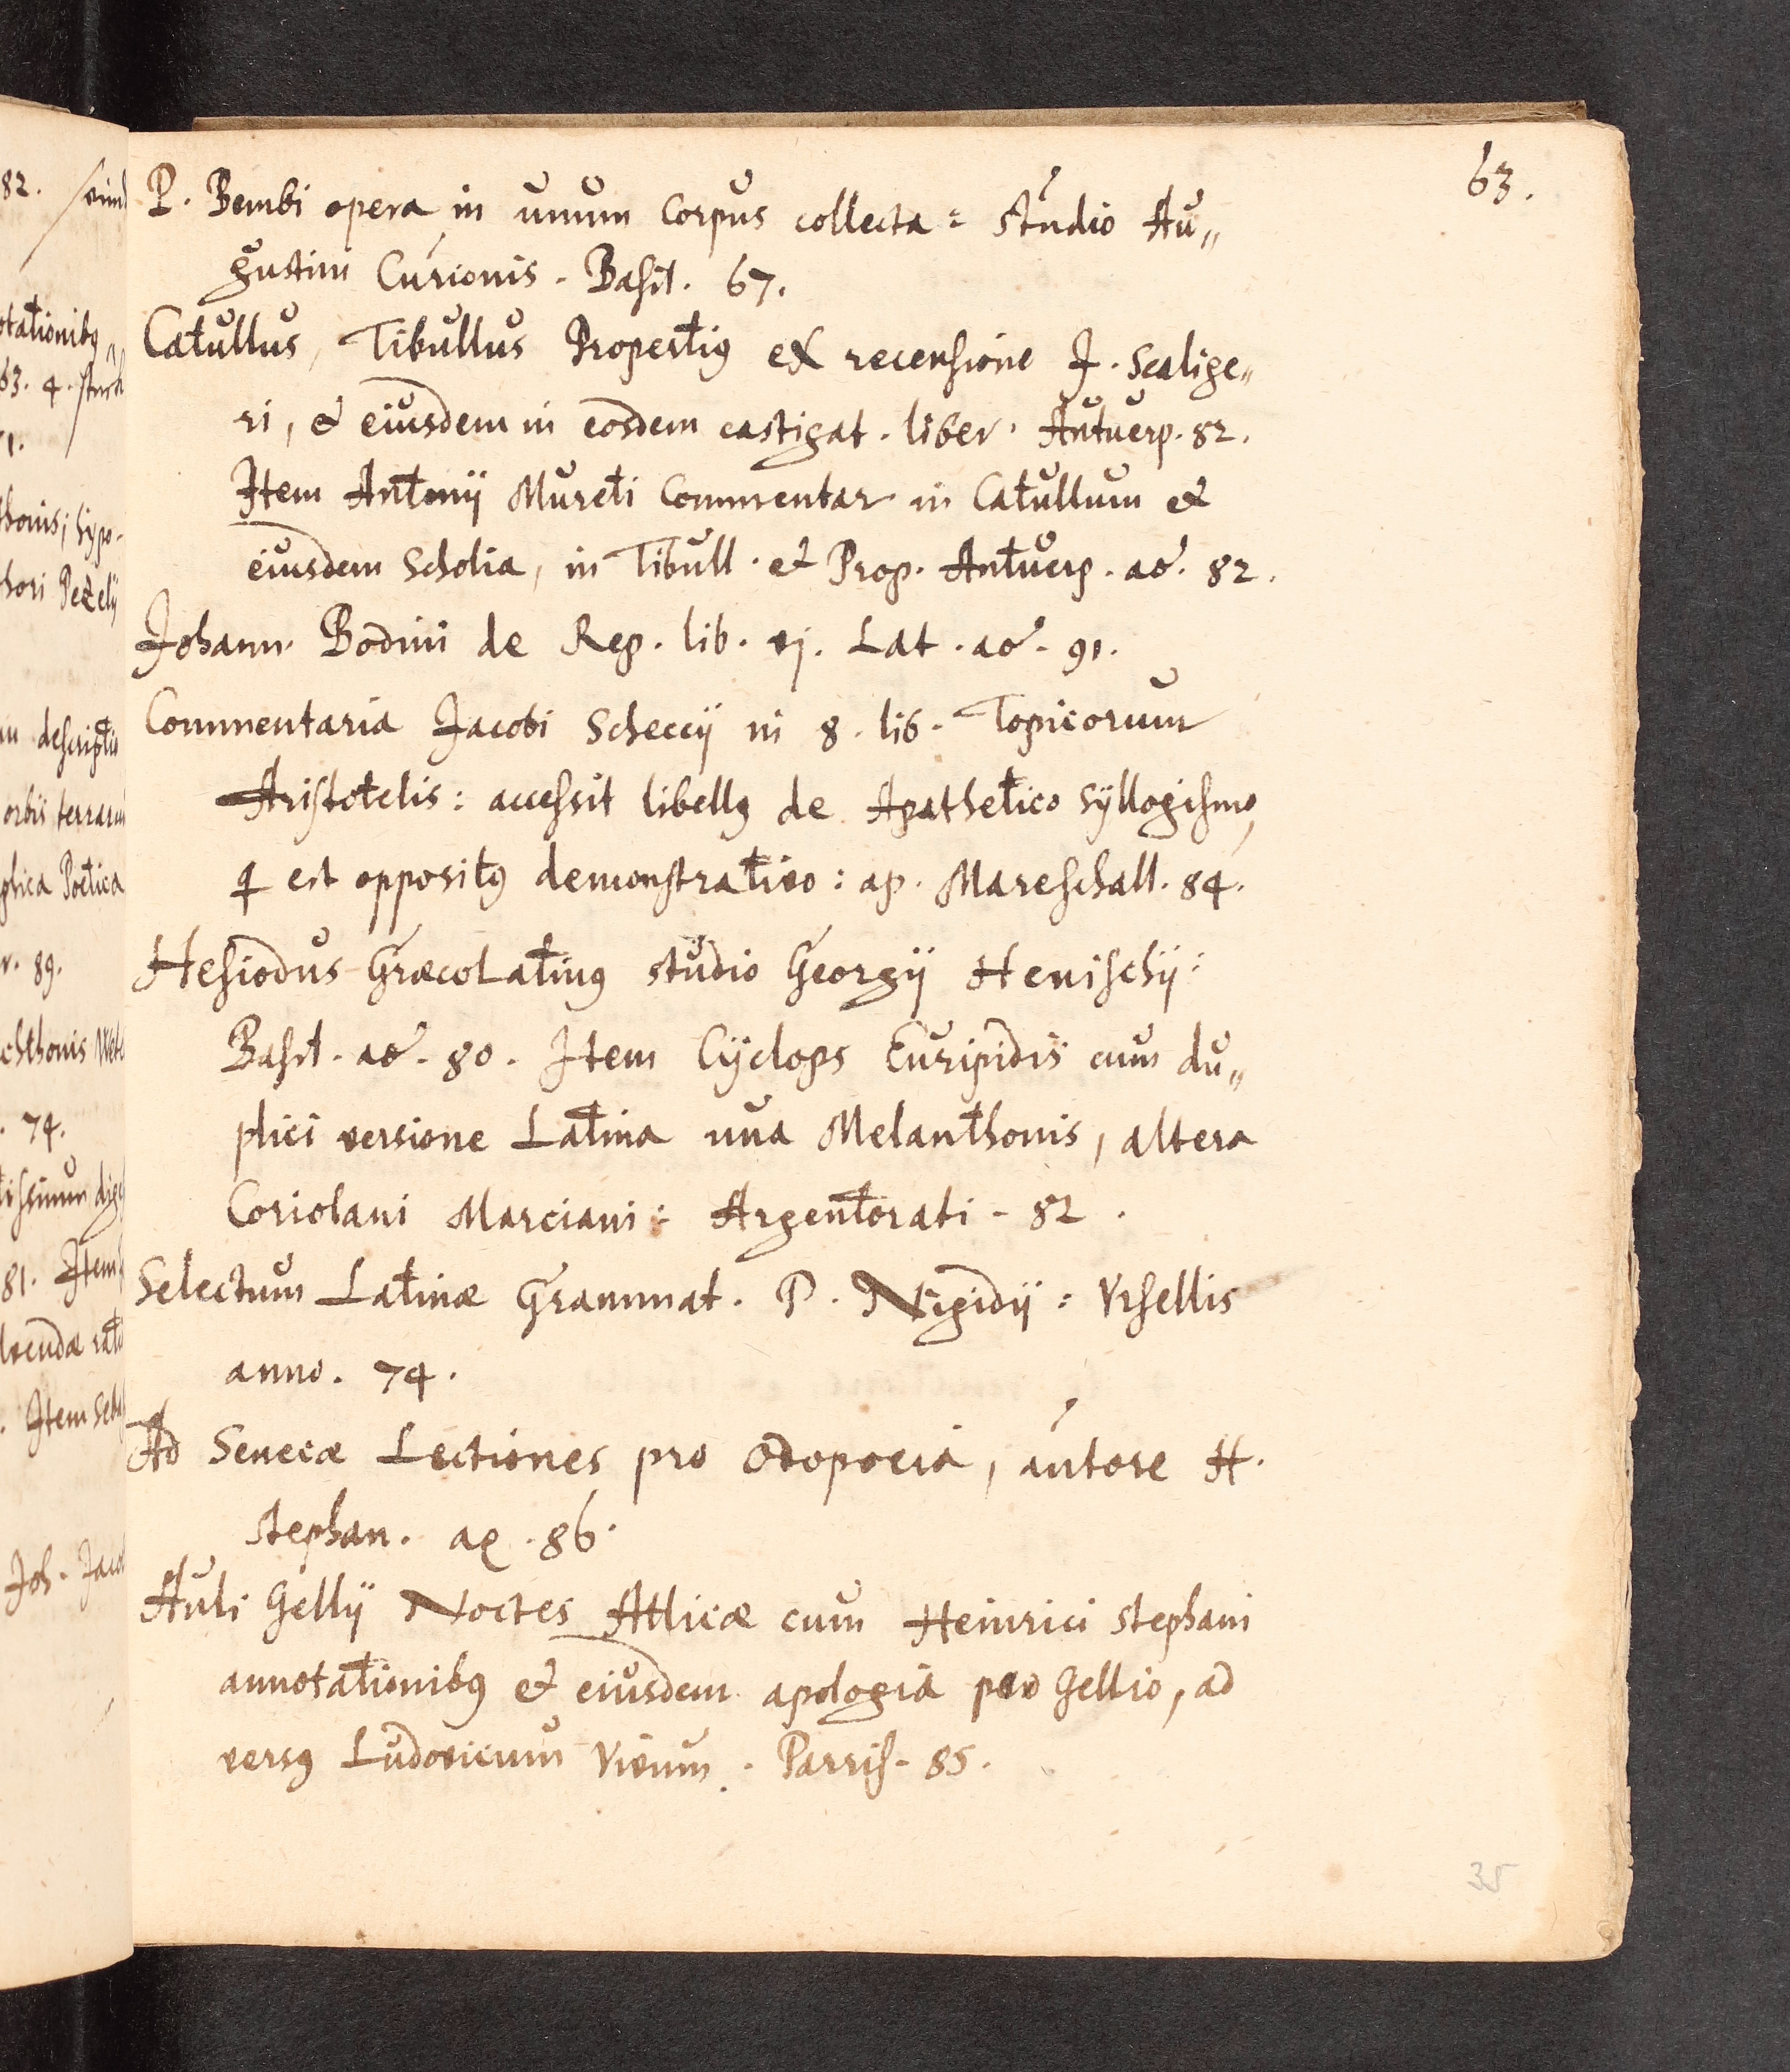 63.
P. Bembi opera in unum corpus collecta: studio Au„
gustini Curionis. Basil. 67.
Catullus, Tibullus Propertiꝰ ex recensione J. Scalige„
ri, et eiusdem in eosdem castigat. liber. Antuerp. 82.
Item Antonij Mureti Commentar in Catullum et
eiusdem Scholia, in Tibull. et Prop. Antuerp. aõ. 82.
Johann. Bodini de Rep. lib. vj. Lat. aõ. 91.
Commentaria Jacobi Scheccij in 8. lib. Topicorum
Aristotelis: accessit libellꝰ de Apathetico syllogismo,
q est oppositꝰ demonstrativo: ap. Mareschall. 84.
Hesiodus Græcolatinꝰ studio Georgij Henischij:
Basil. aõ. 80. Item Cyclops Euripidis cum du„
plici versione Latina una Melanthonis, altera
Coriolani Marciani: Argentorati. 82.
Selectum Latinæ Grammat. P. Nigidij: Vrsellis
anno. 74.
Ad Senecæ Lectiones pro odopoeia, autore H.
Stephan. 86.
Auli Gellij Noctes Atticæ cum Heinrici Stephani
annotationibꝰ et eiusdem apologia pro Gellio, ad
versꝰ Ludovicum Vivum. Parris. 85.
35
82.
otationibꝰ„
63. 4.
1.
thonis; hypo-
hori Pezelij
descriptio
orbis terrarum
phica Poetica
r. 89.
chthonis
. 74.
81. Item
. Item
Joh. Jacob